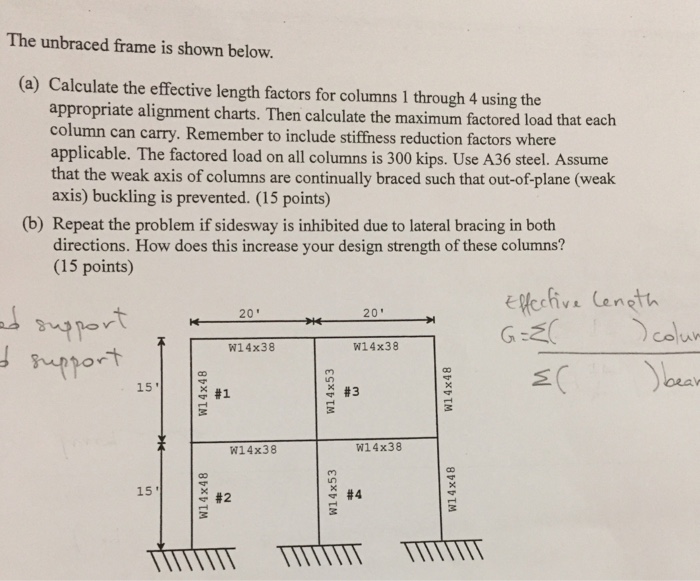 The unbraced frame is shown below.
(a) Calculate the effective length factors for columns 1 through 4 using the
appropriate alignment charts. Then calculate the maximum factored load that each
column can carry. Remember to include stiffness reduction factors where
applicable. The factored load on all columns is 300 kips. Use A36 steel. Assume
that the weak axis of columns are continually braced such that out-of-plane (weak
axis) buckling is prevented. (15 points)
(b) Repeat the problem if sidesway is inhibited due to lateral bracing in both
directions. How does this increase your design strength of these columns?
(15 points)
support
support
Effective Length
G=Σ( )colum
Σ( )bear
20' 20'
W14x38 W14x38
15' W14x48 #1 W14x53 #3 W14x48
W14x38 W14x38
15' W14x48 #2 W14x53 #4 W14x48